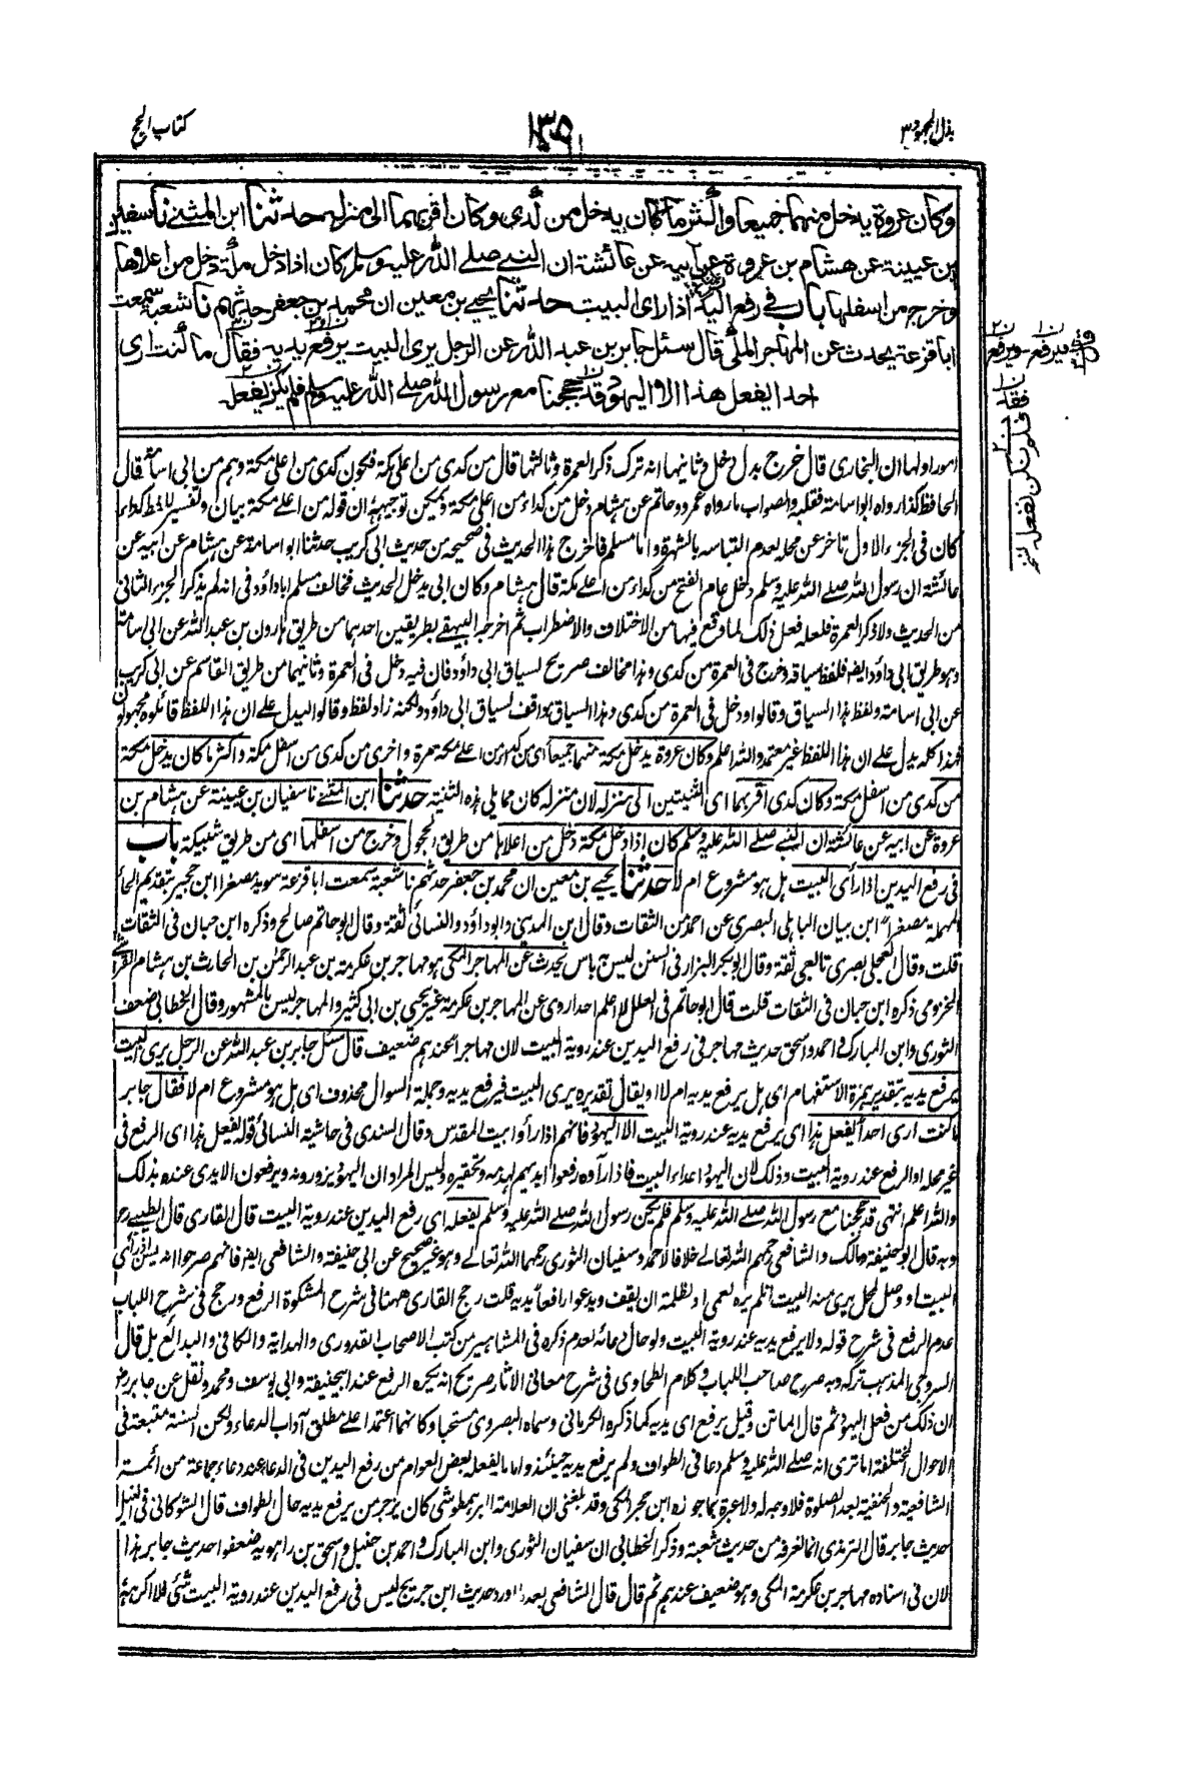 بذل المجهود ٣
١٣٩
كتاب الحج
وكان عروة يدخل منهما جميعا واكثر ما كان يدخل من كُدى وكان اقربهما الى منزله حدثنا ابن المثنى نا سفين
بن عيينة عن هشام بن عروة عن ابيه عن عائشة ان النبي صلى الله عليه وسلم كان اذا دخل مكة دخل من اعلاها
وخرج من اسفلها باب في رفع اليد اذا راى البيت حدثنا يحيى بن معين ان محمد بن جعفر حدثهم نا شعبة سمعت
ابا قزعة يحدث عن المهاجر المكي قال سئل جابر بن عبد الله عن الرجل يرى البيت يرفع يديه فقال ما كنت ارى
احدا يفعل هذا الا اليهود قد حججنا مع رسول الله صلى الله عليه وسلم فلم يكن يفعله
فيرفع ويرفع
فقد
فلم يكن نفعله
امور اولها ان البخارى قال خرج بدل دخل وثانيها انه ترك ذكر العمرة وثالثها قال من كدى من اعلى مكة فيكون كدى من اعلى مكة وهم من ابى اسامة قال
الحافظ كذا رواه ابو اسامة فقلبه والصواب ما رواه عمرو وحاتم عن هشام دخل من كداء من اعلى مكة ويمكن توجيهه ان قوله من اعلى مكة بيان وتفسير للفظ كداء
كان فى الجزء الاول تاخر عن محله لعدم التباسه بالشهرة واما مسلم فاخرج هذا الحديث فى صحيحه من حديث ابى كريب حدثنا ابو اسامة عن هشام عن ابيه عن
عائشة ان رسول الله صلى الله عليه وسلم دخل عام الفتح من كداء من اعلى مكة قال هشام وكان ابى يدخل الحديث فخالف مسلم ابا داؤد فى انه لم يذكر الجزء الثانى
من الحديث ولا ذكر العمرة فلعله فعل ذلك لما وقع فيها من الاختلاف والاضطراب ثم اخرجه البيهقى بطريقين احدهما من طريق هارون بن عبد الله عن ابى اسامة
وهو طريق ابى داؤد ايضا فلفظ سياقه وخرج فى العمرة من كدى وهذا مخالف صريح لسياق ابى داؤد فان فيه دخل فى العمرة وثانيهما من طريق القاسم عن ابى كريب
عن ابى اسامة ولفظ هذا السياق وقالوا ودخل فى العمرة من كدى وهذا السياق موافق لسياق ابى داؤد ولكنه زاد لفظ وقالوا ليدل على ان هذا اللفظ قائلوه مجهولون
فهذا كله يدل على ان هذا اللفظ غير معتمد والله اعلم وكان عروة يدخل مكة منهما جميعا اى من كداء من اعلى مكة مرة واخرى من كدى من اسفل مكة واكثر ما كان يدخل مكة
من كدى من اسفل مكة وكان كدى اقربهما اى الثنيتين الى منزله لان منزله كان مما يلى هذه الثنية حدثنا ابن المثنى نا سفيان بن عيينة عن هشام بن
عروة عن ابيه عن عائشة ان النبى صلى الله عليه وسلم كان اذا دخل مكة دخل من اعلاها من طريق الحجول وخرج من اسفلها اى من طريق شبيكة باب
فى رفع اليدين اذا رأى البيت هل هو مشروع ام لا حدثنا يحيى بن معين ان محمد بن جعفر حدثهم نا شعبة سمعت ابا قزعة سويد مصغرا ابن حجير بتقديم الحاء
المهملة مصغرا ابن بيان الباهلى البصرى عن احمد من الثقات وقال ابن المدينى وابو داؤد والنسائى ثقة وقال ابو حاتم صالح وذكره ابن حبان فى الثقات
قلت وقال العجلى بصرى تابعى ثقة وقال ابو بكر البزار فى السنن ليس به باس يحدث عن المهاجر المكى هو مهاجر بن عكرمة بن عبد الرحمن بن الحارث بن هشام القرشى
المخزومى ذكره ابن حبان فى الثقات قلت قال ابو حاتم فى العلل لا اعلم احدا روى عن المهاجر بن عكرمة غير يحيى بن ابى كثير والمهاجر ليس بالمشهور وقال الخطابى ضعف
الثورى وابن المبارك واحمد واسحق حديث مهاجر فى رفع اليدين عند روية البيت لان مهاجرا عندهم ضعيف قال سئل جابر بن عبد الله عن الرجل يرى البيت
يرفع يديه بتقدير همزة الاستفهام اى هل يرفع يديه ام لا او يقال تقديره يرى البيت فيرفع يديه وجملة السوال محذوف اى هل هو مشروع ام لا فقال جابر
ما كنت ارى احدا يفعل هذا اى يرفع يديه عند روية البيت الا اليهود فانهم اذا رأوا بيت المقدس وقال السندى فى حاشية النسائى قوله يفعل هذا اى الرفع فى
غير محله او الرفع عند روية البيت وذلك لان اليهود اعداء البيت فاذا رآوه رفعوا ايديهم لهدمه وتحقيره وليس المراد ان اليهود يزورونه ويرفعون الايدى عنده بذلك
والله اعلم انتهى قد حججنا مع رسول الله صلى الله عليه وسلم فلم يكن رسول الله صلى الله عليه وسلم يفعله اى رفع اليدين عند روية البيت قال القارى قال الطيبى رح
وبه قال ابو حنيفة ومالك والشافعى رحمهم الله تعالى خلافا لاحمد وسفيان الثورى رحمهما الله تعالى وهو غير صحيح عن ابى حنيفة والشافعى ايضا فانهم صرحوا انه يسن اذا رأى
البيت او وصل لمحل يرى منه البيت ان لم يره لعمى او لظلمة ان يقف ويدعو رافعا يديه قلت رجح القارى ههنا فى شرح المشكوة الرفع ورجح فى شرح اللباب
عدم الرفع فى شرح قوله ولا يرفع يديه عند روية البيت ولو حال دعائه لعدم ذكره فى المشاهير من كتب الاصحاب القدورى والهداية والكافى والبدائع بل قال
السروجى المذهب تركه وبه صرح صاحب اللباب وكلام الطحاوى فى شرح معانى الاثار صريح انه يكره الرفع عند ابيحنيفة وابى يوسف ومحمد ونقل عن جابر رض
ان ذلك من فعل اليهود ثم قال الماتن وقيل يرفع اى يديه كما ذكره الكرمانى وسماه البصروى مستحبا وكانهما اعتمدا على مطلق آداب الدعاء ولكن السنة متبعة فى
الاحوال المختلفة اما ترى انه صلى الله عليه وسلم دعا فى الطواف ولم يرفع يديه حينئذ واما ما يفعله بعض العوام من رفع اليدين فى الدعاء عند دعاء جماعة من ائمة
الشافعية والحنفية بعد الصلوة فلا وجه له ولا عبرة بما جوزه ابن حجر المكى وقد بلغنى ان العلامة البرهمطوشى كان يزجر من يرفع يديه حال الطواف قال الشوكانى فى النيل
حديث جابر قال الترمذى انما نعرفه من حديث شعبة وذكر الخطابى ان سفيان الثورى وابن المبارك واحمد بن حنبل واسحق بن راهويه ضعفوا حديث جابر هذا
لان فى اسناده مهاجر بن عكرمة المكى وهو ضعيف عندهم ثم قال قال الشافعى بعد ان اورد حديث ابن جريج ليس فى رفع اليدين عند روية البيت شئ فلا اكرهه